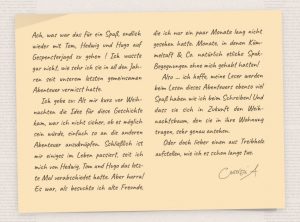 Ach, was war das für ein Spaß, endlich
wieder mit Tom, Hedwig und Hugo auf
Gespensterjagd zu gehen! Ich wusste
gar nicht, wie sehr ich sie in all den Jah-
ren seit unserem letzten gemeinsamen
Abenteuer vermisst hatte.
Ich gebe zu: Als mir kurz vor Weih-
nachten die Idee für diese Geschichte
kam, war ich nicht sicher, ob es möglich
sein würde, einfach so an die anderen
Abenteuer anzuknüpfen. Schließlich ist
mir einiges im Leben passiert, seit ich
mich von Hedwig, Tom und Hugo das letz-
te Mal verabschiedet hatte. Aber hurra!
Es war, als besuchte ich alte Freunde,
die ich nur ein paar Monate lang nicht
gesehen hatte. Monate, in denen Küm-
melsaft & Co. natürlich etliche Spuk-
Begegnungen ohne mich gehabt hatten!
Also ... ich hoffe, meine Leser werden
beim Lesen dieses Abenteuers ebenso viel
Spaß haben wie ich beim Schreiben! Und
dass sie sich in Zukunft den Weih-
nachtsbaum, den sie in ihre Wohnung
tragen, sehr genau ansehen.
Oder doch lieber einen aus Treibholz
aufstellen, wie ich es schon lange tue.